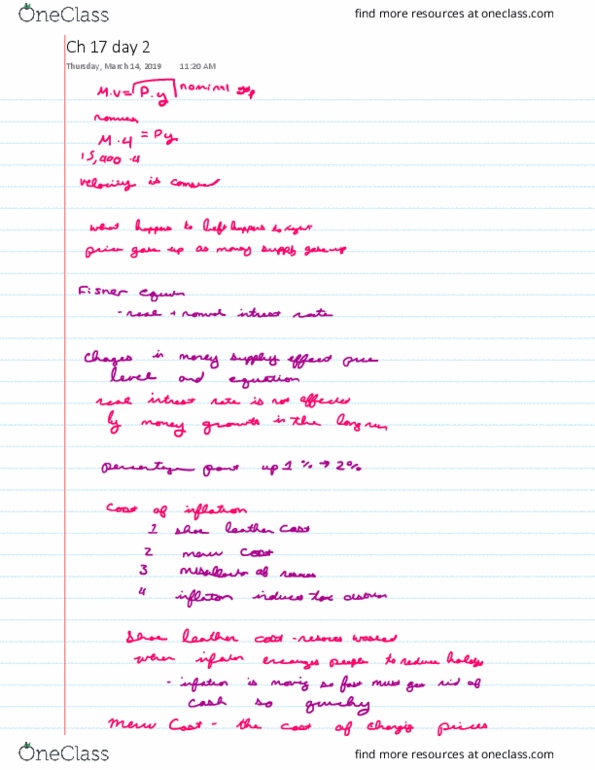 OneClass
find more resources at oneclass.com
Ch 17 day 2
Thursday, March 14, 2019 11:20 AM
M.V= P.y nominal
M.4 = Py
15,400.4
velocity is
what happens to left happens to right
price goes up as money supply goes up
Fisner
- real + interest rate
Chages in money supply effect
level and equation
real intrest rate is not affected
by money growth in the long run
point up 1% → 2%
Cost of inflation
1 shoe leather cost
2 menu cost
3 of
4 inflation induces tax
Shoe leather cost - wasted
when encourages people to reduce
- inflation is moving so fast must get rid of
cash so quickly
Menu Cost - the cost of prices
OneClass
find more resources at oneclass.com